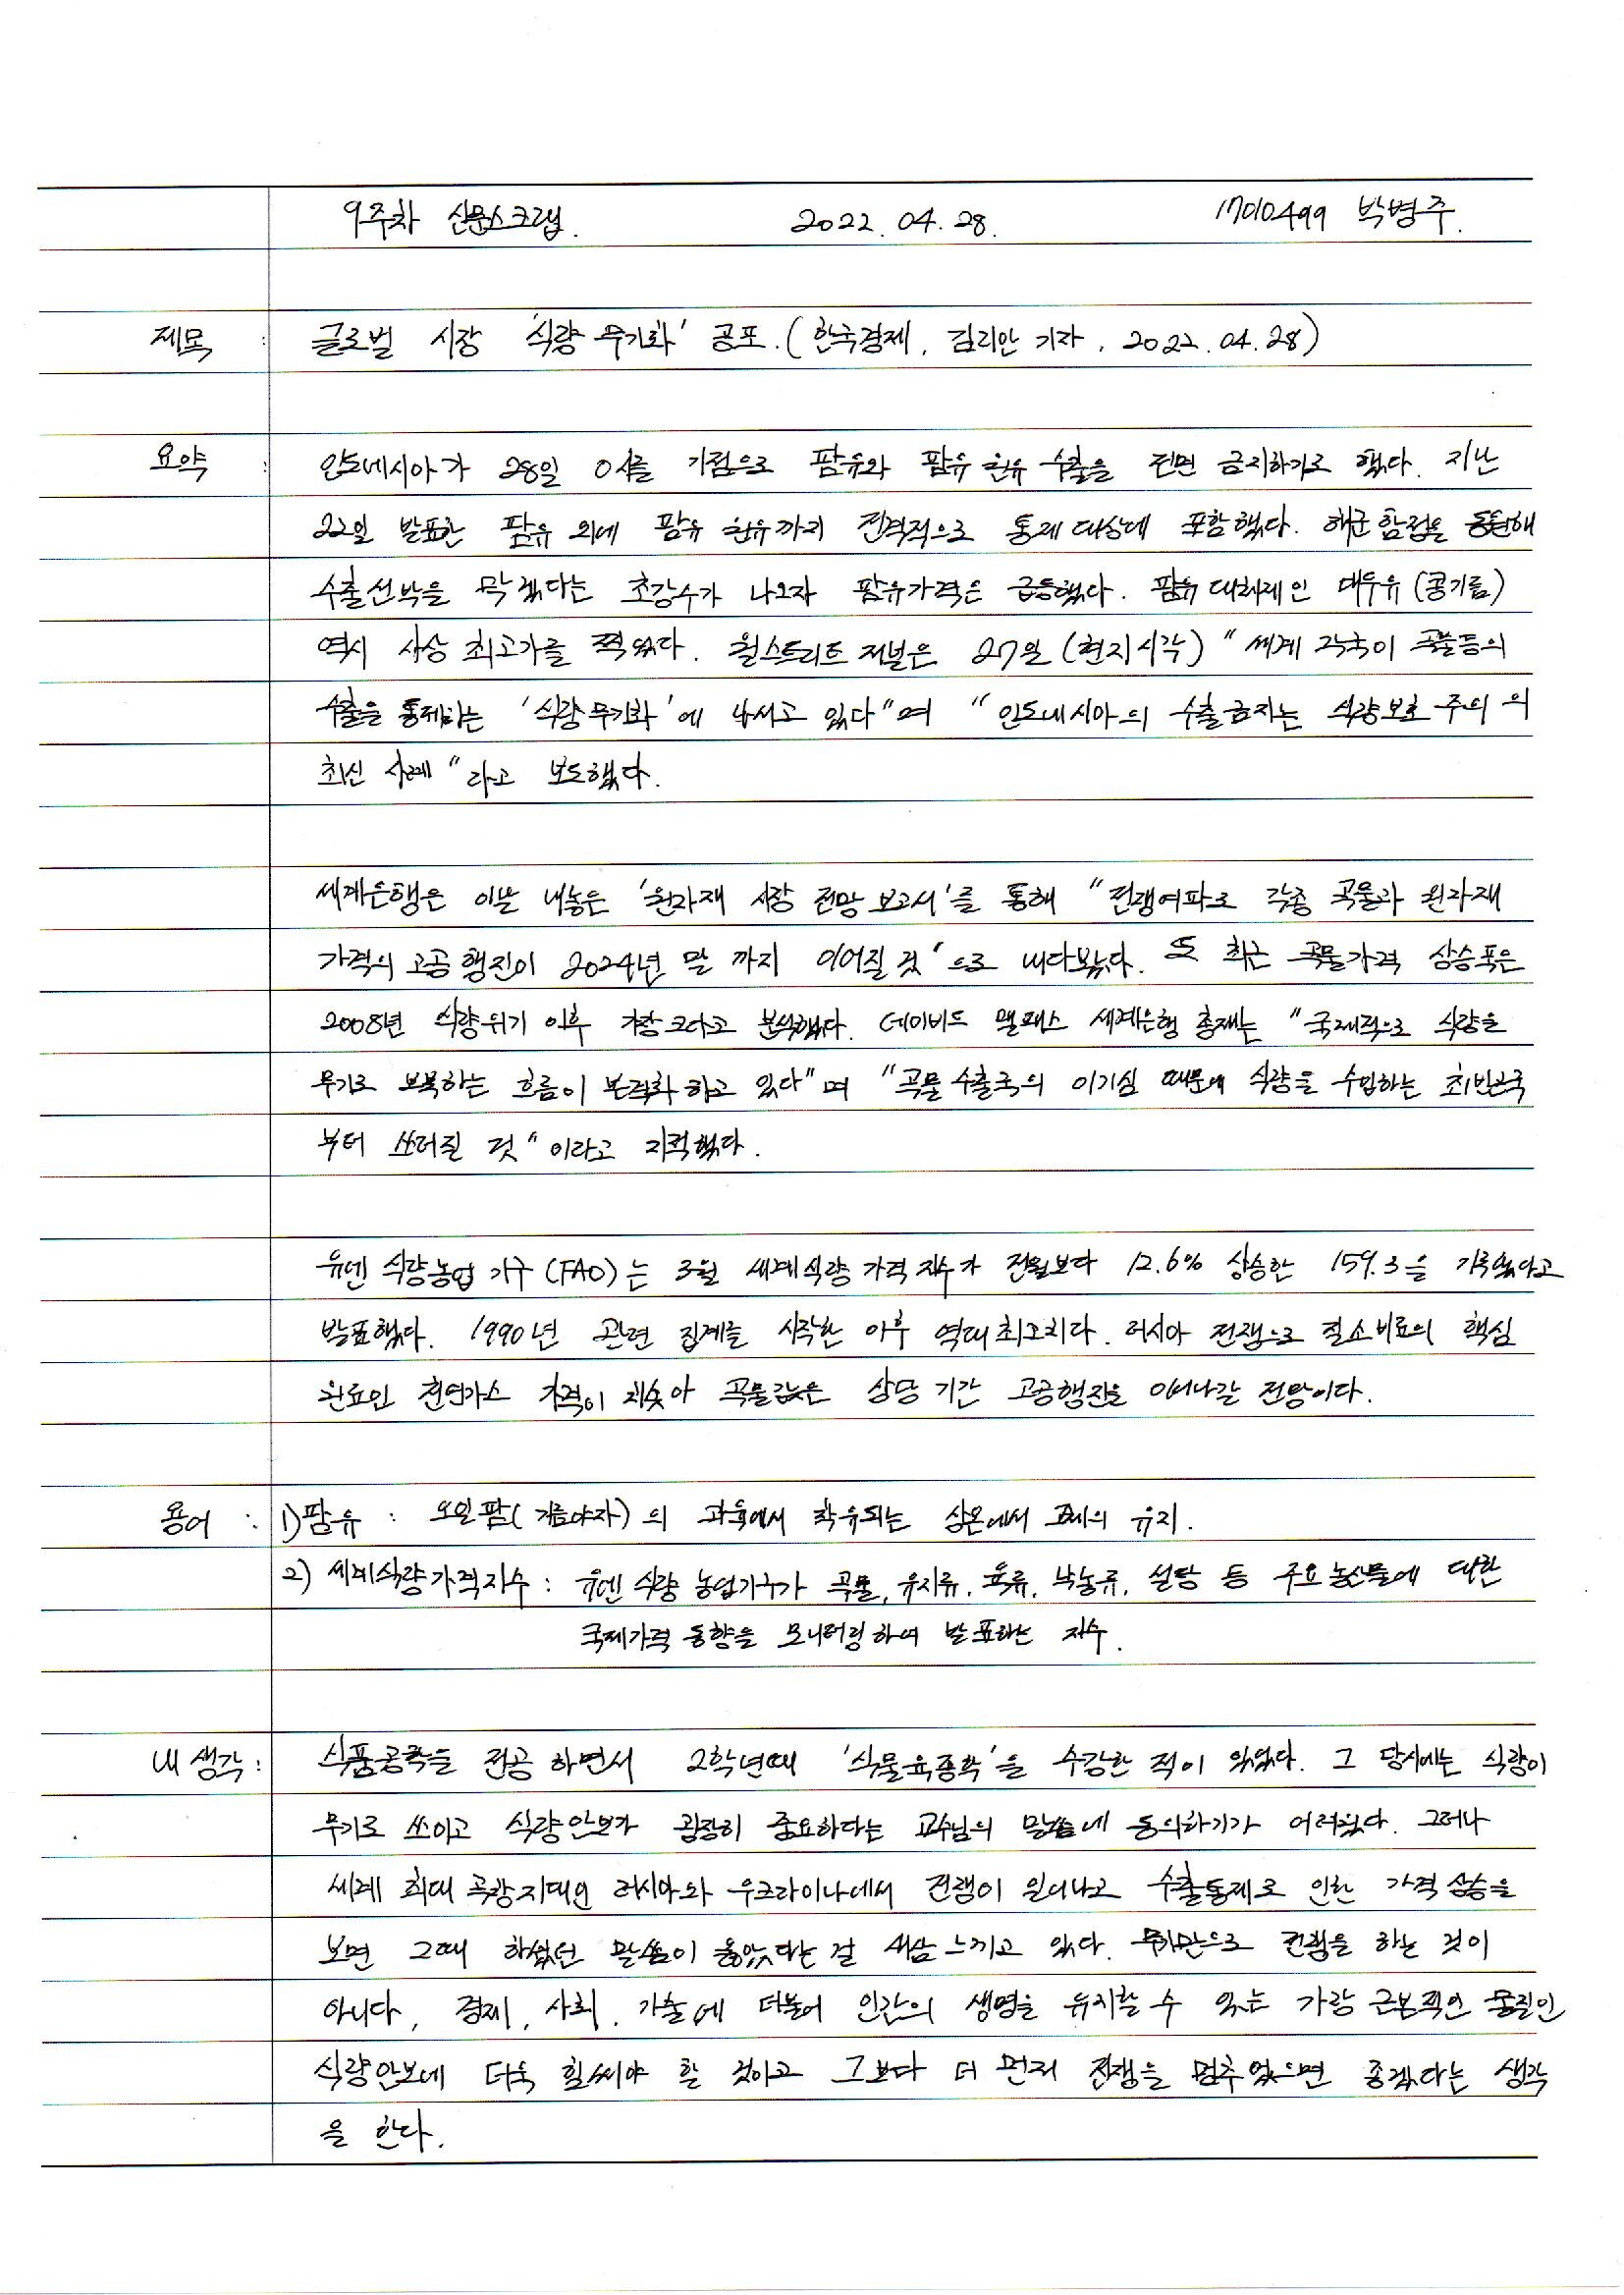 9주차 신문스크랩. 2022.04.28. 17010499 박병주.
제목 : 글로벌 시장 '식량 무기화' 공포. (한국경제, 김리안 기자, 2022.04.28)
요약 : 인도네시아가 28일 0시를 기점으로 팜유와 팜유 원유 수출을 전면 금지하기로 했다. 지난
22일 발표한 팜유 외에 팜유 원유까지 전격적으로 통제 대상에 포함했다. 해군함정을 동원해
수출선박을 막겠다는 초강수가 나오자 팜유가격은 급등했다. 팜유 대체재인 대두유(콩기름)
역시 사상 최고가를 찍었다. 월스트리트 저널은 27일(현지시각) "세계 각국이 곡물등의
수출을 통제하는 '식량무기화'에 나서고 있다"며 "인도네시아의 수출금지는 식량보호주의의
최신 사례"라고 보도했다.
세계은행은 이날 내놓은 '원자재 시장 전망 보고서'를 통해 "전쟁여파로 각종 곡물과 원자재
가격의 고공행진이 2024년 말 까지 이어질 것"으로 내다봤다. 또 최근 곡물가격 상승폭은
2008년 식량위기 이후 가장 크다고 분석했다. 데이비드 맬패스 세계은행 총재는 "국제적으로 식량을
무기로 보복하는 흐름이 본격화 하고 있다"며 "곡물 수출국의 이기심 때문에 식량을 수입하는 최빈국
부터 쓰러질 것"이라고 지적했다.
유엔 식량농업 기구(FAO)는 3월 세계식량 가격 지수가 전월보다 12.6% 상승한 159.3을 기록했다고
발표했다. 1990년 관련 집계를 시작한 이후 역대최고치다. 러시아 전쟁으로 질소비료의 핵심
원료인 천연가스 가격이 치솟아 곡물값은 상당 기간 고공행진을 이어나갈 전망이다.
용어 : 1) 팜유 : 오일팜(기름야자)의 과육에서 착유되는 상온에서 고체의 유지.
2) 세계식량가격지수 : 유엔 식량 농업기구가 곡물, 유지류, 육류, 낙농류, 설탕 등 주요 농산물에 대한
국제가격 동향을 모니터링하여 발표하는 지수.
내 생각 : 식품공학을 전공 하면서 2학년때 '식물육종학'을 수강한 적이 있었다. 그 당시에는 식량이
무기로 쓰이고 식량안보가 굉장히 중요하다는 교수님의 말씀에 동의하기가 어려웠다. 그러나
세계 최대 곡창지대인 러시아와 우크라이나에서 전쟁이 일어나고 수출통제로 인한 가격 상승을
보면 그때 하셨던 말씀이 옳았다는 걸 새삼 느끼고 있다. 무기만으로 전쟁을 하는 것이
아니다. 경제, 사회, 기술에 더불어 인간의 생명을 유지할 수 있는 가장 근본적인 물질인
식량안보에 더욱 힘써야 할 것이고 그보다 더 먼저 전쟁을 멈추었으면 좋겠다는 생각
을 한다.